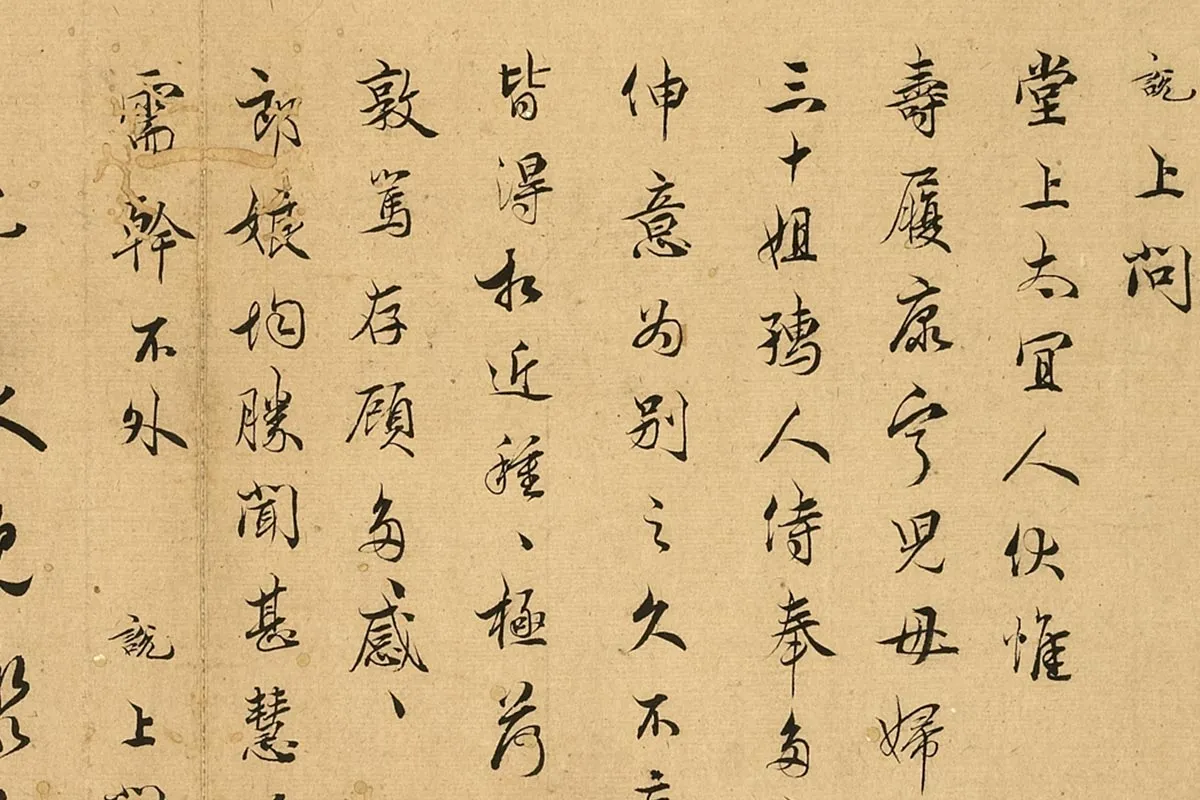 說上問
堂上太宜人伏惟
壽履康寧兒母婦
三十姐孺人侍奉多
伸意為別之久不
皆得相近種、極荷
敦篤存顧多感、
郎娘均勝聞甚慧
需幹不外 說上問